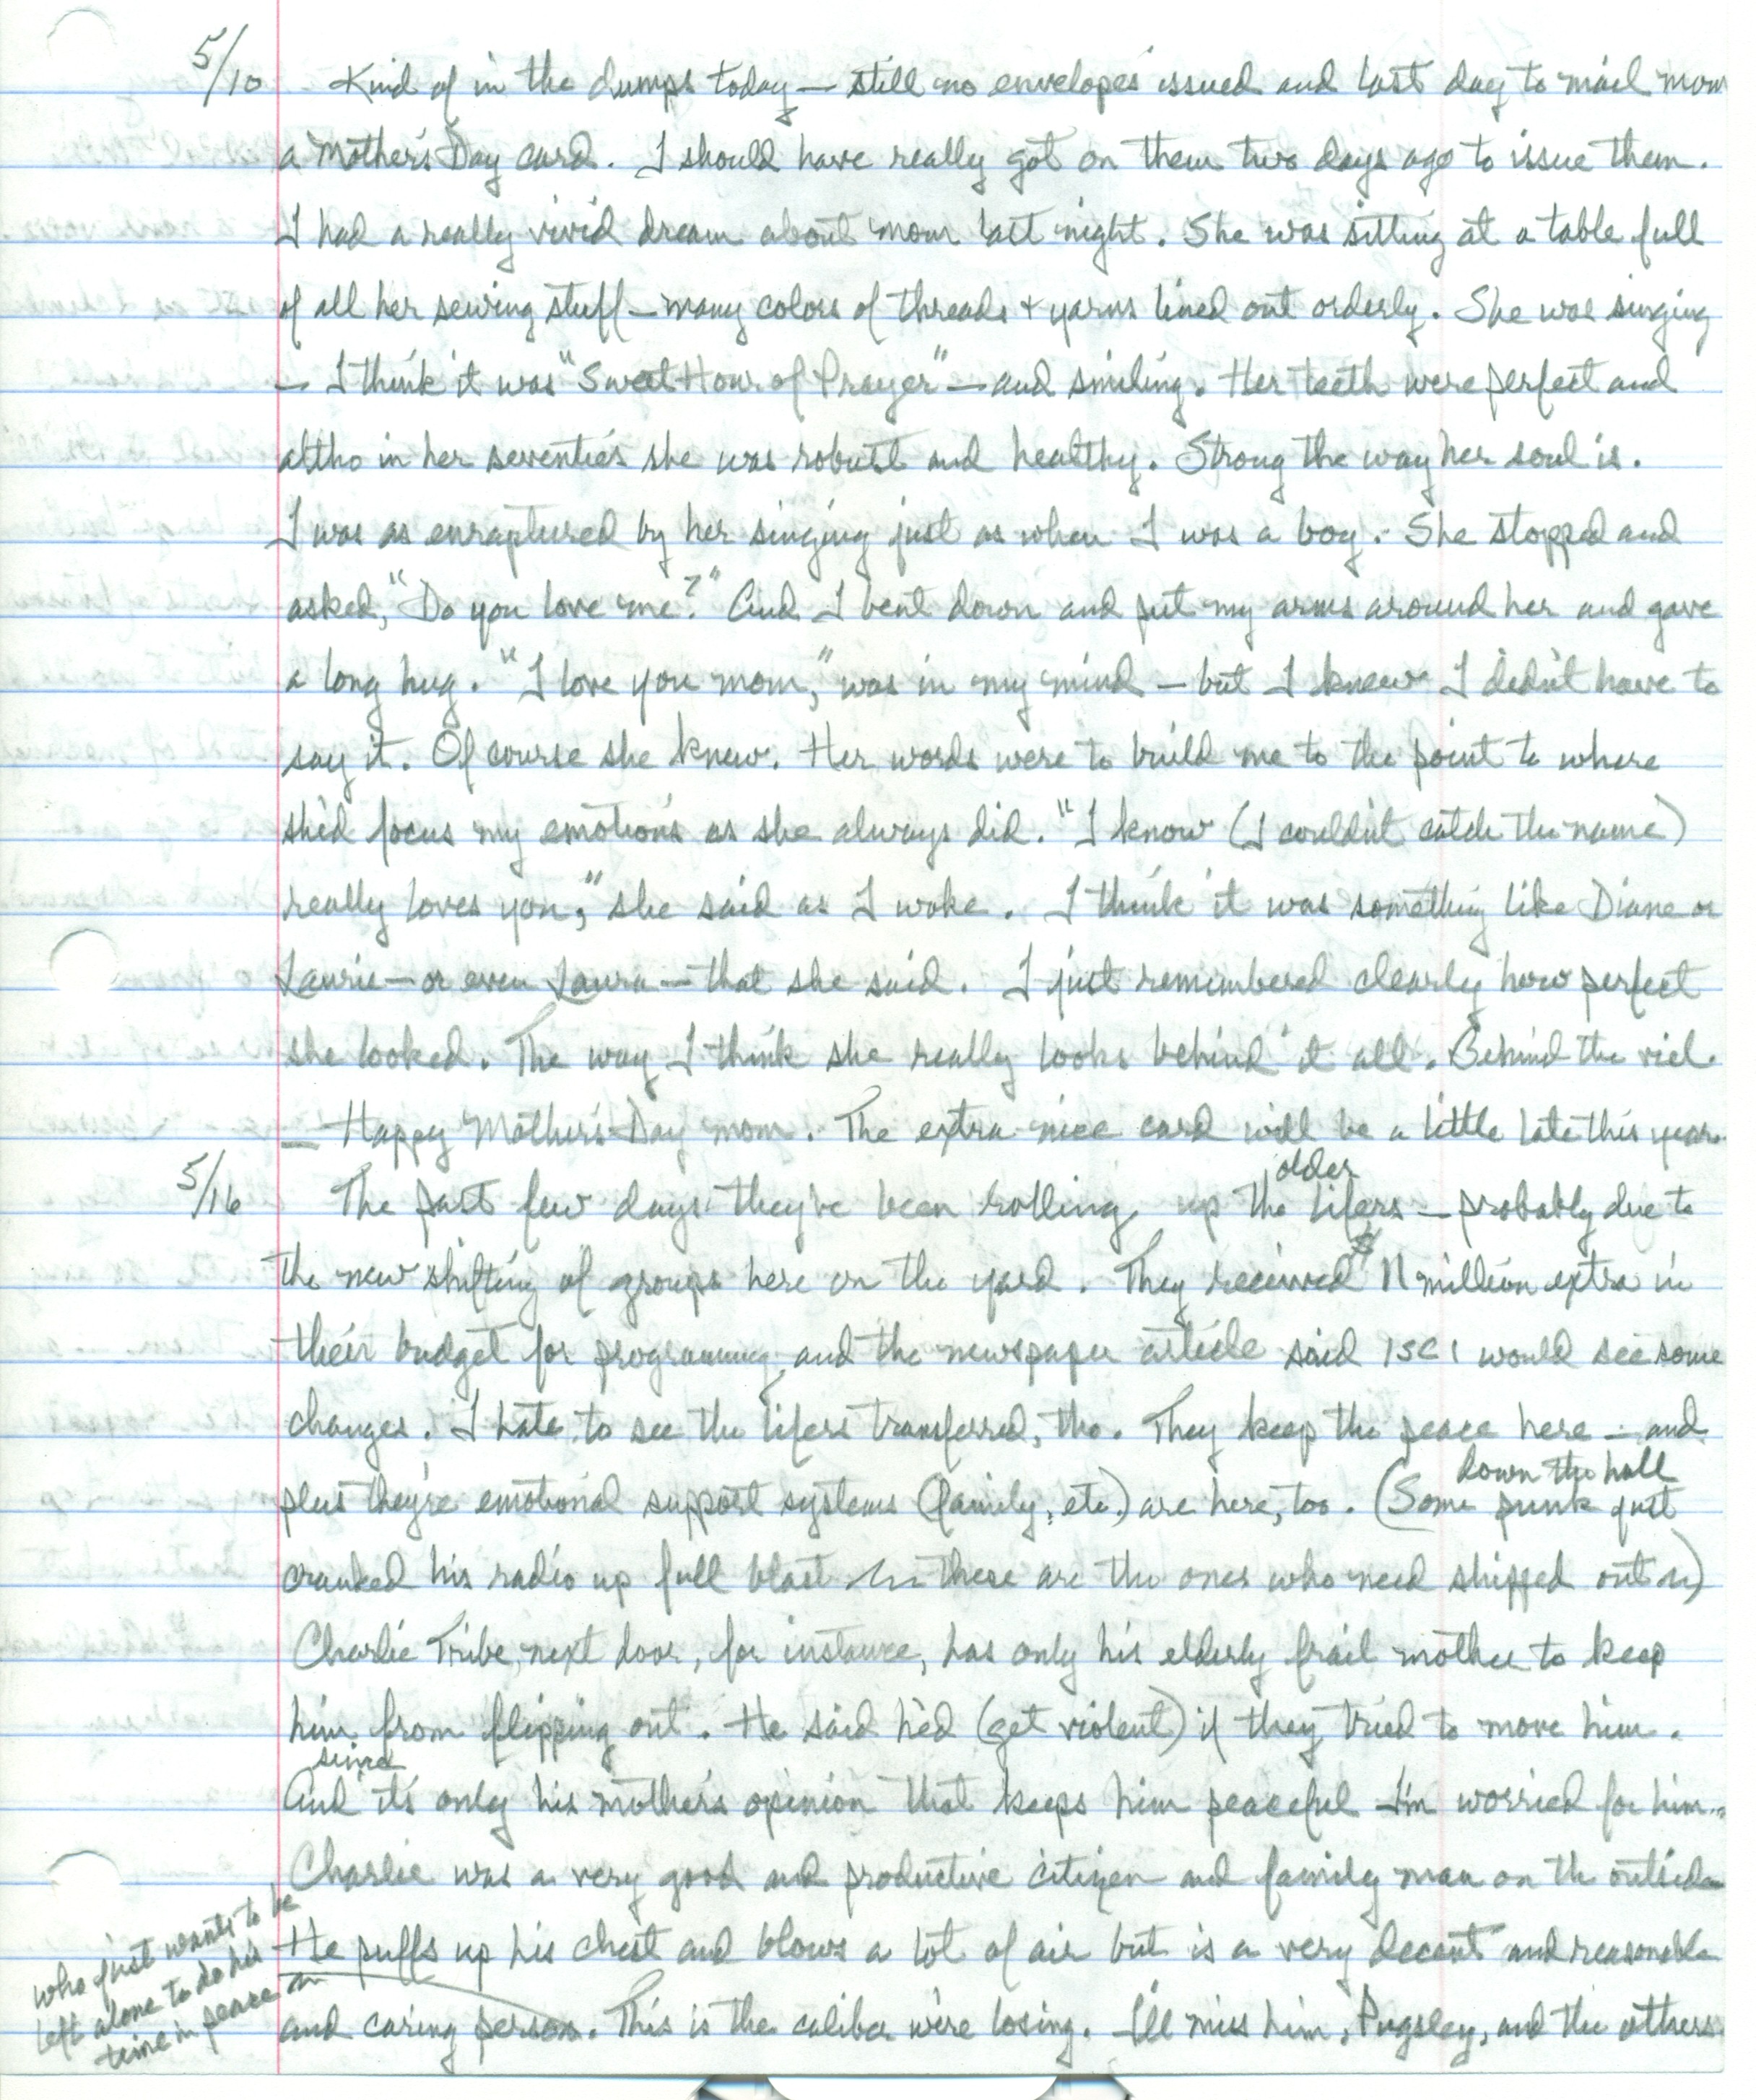 5/10 Kind of in the dumps today — still no envelopes issued and last day to mail mom
a Mother's Day card. I should have really got on them two days ago to issue them.
I had a really vivid dream about mom last night. She was sitting at a table full
of all her sewing stuff — many colors of threads + yarns lined out orderly. She was singing
— I think it was "Sweet Hour of Prayer" — and smiling. Her teeth were perfect and
altho in her seventies she was robust and healthy. Strong the way her soul is.
I was as enraptured by her singing just as when I was a boy. She stopped and
asked, "Do you love me?" And I bent down and put my arms around her and gave
a long hug. "I love you mom," was in my mind — but I knew I didn't have to
say it. Of course she knew. Her words were to build me to the point to where
she'd focus my emotions as she always did. "I know (I couldn't catch the name)
really loves you," she said as I woke. I think it was something like Diane or
Laurie — or even Laura — that she said. I just remembered clearly how perfect
she looked. The way I think she really looks behind it all. Behind the viel.
— Happy Mother's Day mom. The extra nice card will be a little late this year.
older
5/16 The past few days they've been rolling up the lifers — probably due to
the new shifting of groups here on the yard. They received $11 million extra in
their budget for programming, and the newspaper article said ISCI would see some
changes. I hate to see the lifers transferred, tho. They keep the peace here — and
down the hall
plus they're emotional support systems (family, etc.) are here, too. (Some punk just
cranked his radio up full blast — these are the ones who need shipped out —)
Charlie Tribe, next door, for instance, has only his elderly frail mother to keep
him from flipping out. He said he'd (get violent) if they tried to move him.
since
And it's only his mother's opinion that keeps him peaceful I'm worried for him...
Charlie was a very good and productive citizen and family man on the outside
He puffs up his chest and blows a lot of air but is a very decent and reasonable
and caring person. This is the caliber we're losing. I'll miss him, Pugsley, and the others.
who just wants to be
left alone to do his
time in peace